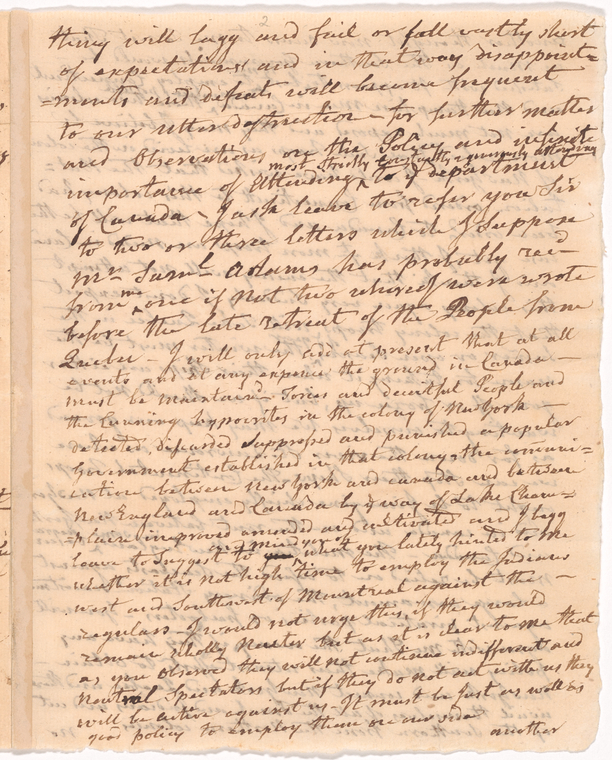 thing will lagg and fail or fall vastly short
of expectations and in that way disappoint=
=ments and defeats will become frequent
to our utter destruction - for further matter
and Observations on the Policy and infinite
most strictly Constantly & vigorously attending
importance of Attending ^ to ye department
of Canada - I ask leave to refer you Sir
to two or three letters which I suppose
Mr. Saml. Adams has probably recd
from me ^ one if not two whereof were wrote
before the late retreat of the People from
Quebec - I will only add at present that at all
events and at any expence the ground in Canada -
must be maintaind Tories and deceitful People and
the Cunning hypocrites in the colony of New York -
detected, discarded suppressed and punished a popular
Government established in that colony, the communi=
cation between New York and canada and between
New England and Canada by ye way of Lake Cham=
plain improved amended and cultivated and I begg
leave to Suggest to and mind you of what you lately hinted to me
whether it is not high Time to employ the Indians
west and Southwest of Montreal against the -
regulars - I would not urge this, if they would
remain wholly Neuter but as it is clear to me that
as you observe they will not continue indifferent and
Neutral Spectators but if they do not act with us they
will be active against us - It must be Just as well as
good policy to employ them on our side
another